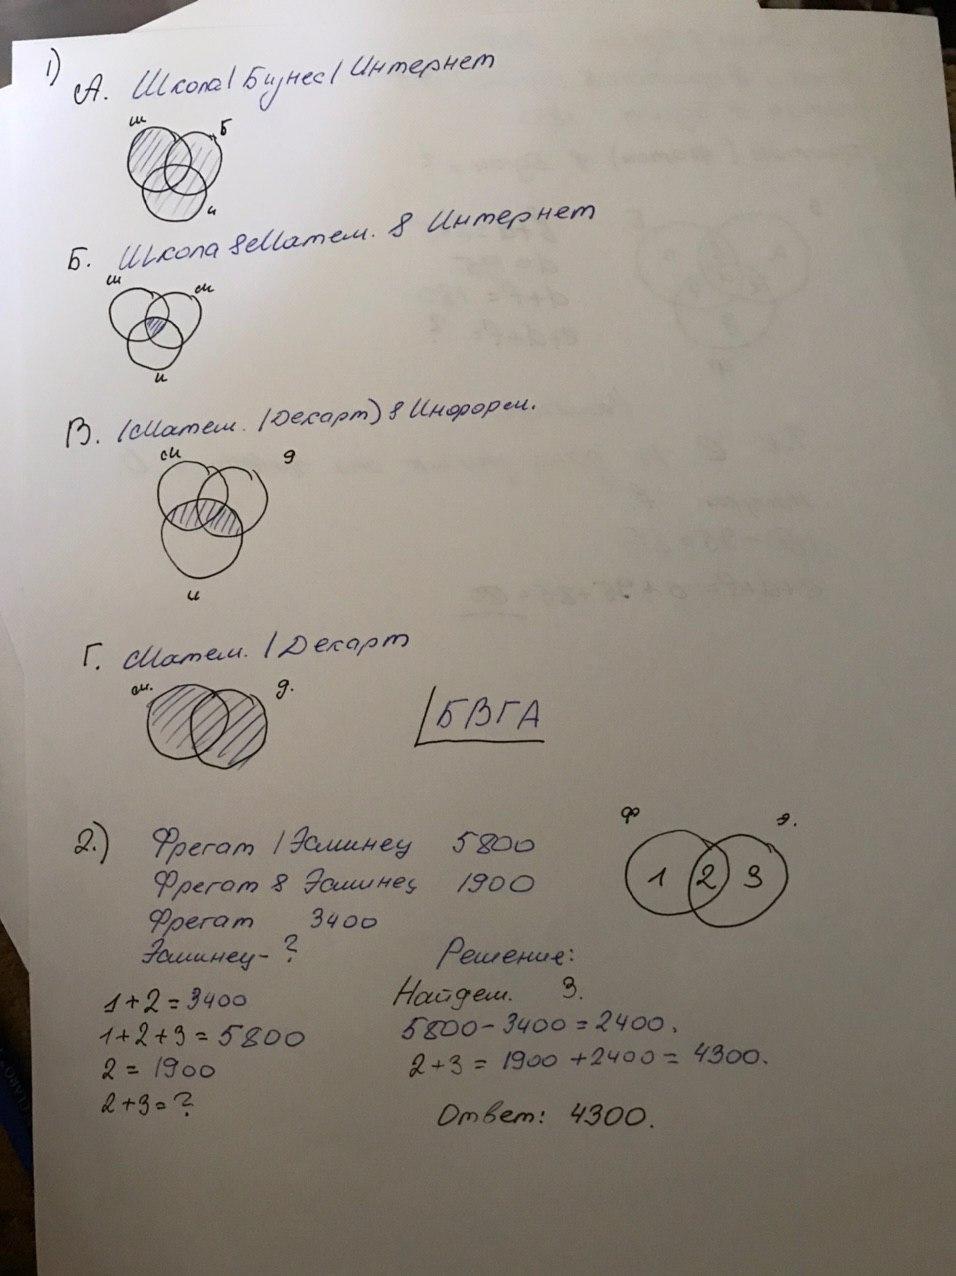 1)
А. Школа | Бизнес | Интернет
ш
Б
и
Б. Школа & Матем. & Интернет
ш
м
и
В. (Матем. | Декарт) & Информ.
м
д
и
Г. Матем. | Декарт
м.
д.
БВГА
2.)
Фрегат | Эсминец 5800
Фрегат & Эсминец 1900
Фрегат 3400
Эсминец - ?
ф
э.
1 2 3
1+2 = 3400
1+2+3 = 5800
2 = 1900
2+3 = ?
Решение:
Найдем 3.
5800 - 3400 = 2400.
2+3 = 1900 + 2400 = 4300.
Ответ: 4300.